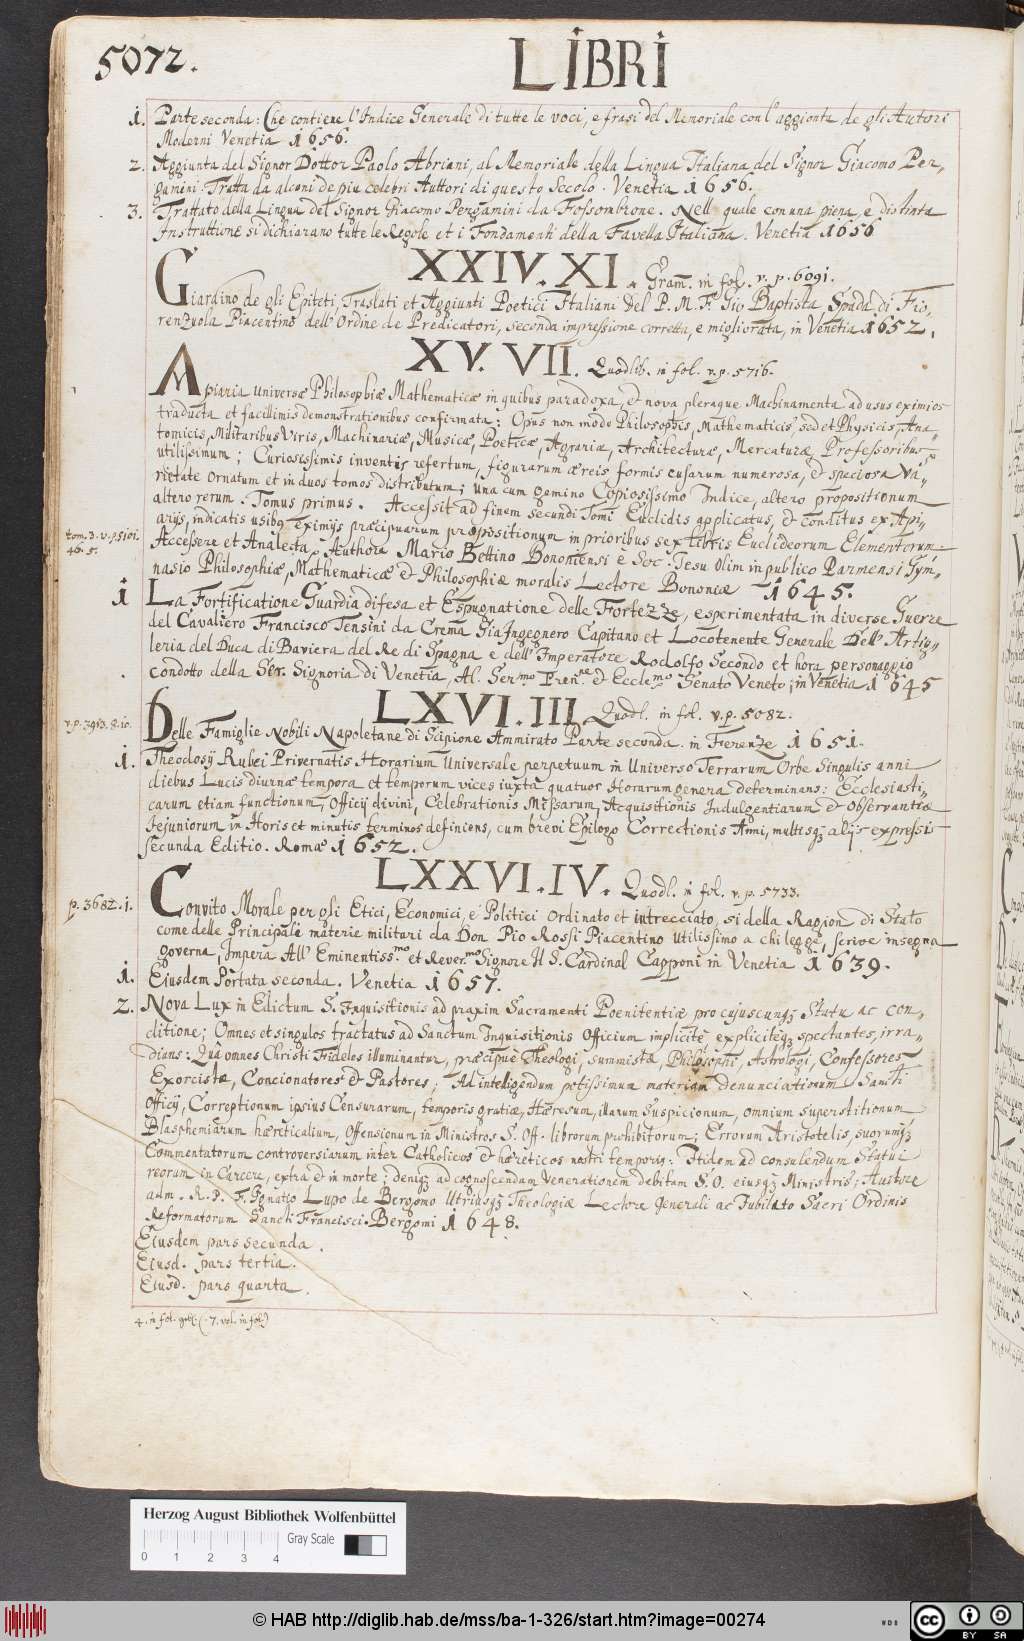 5072. LIBRI
1. Parte seconda: Che contiene l'Indice Generale di tutte le voci, e frasi del Memoriale con l'aggionta de gli Autori
Moderni Venetia 1656.
2. Aggiunta del Signor Dottor Paolo Abriani, al Memoriale della Lingua Italiana del Signor Giacomo Per„
gamini. Tratta da alconi de piu celebri Auttori di questo Secolo. Venetia 1656.
3. Trattato della Lingua del Signor Giacomo Pergamini da Fossombrone. Nell quale con una piena, e distinta
Instruttione si dichiarano tutte le Regole et i Fondamenti della Favella Italiana. Venetia 1656
XXIV. XI. Gram. in fol. v. p. 6091.
Giardino de gli Epiteti, Traslati et Aggiunti Poetici Italiani del P. M. F. Gio Baptista Spada di Fio„
renzuola Piacentino dell' Ordine de Predicatori, seconda impressione corretta, e migliorata, in Venetia 1652.
XV. VII. Quodlib. in fol. v. p. 5716.
Apiaria universæ Philosophiæ Mathematicæ in quibus paradoxa, & nova pleraque Machinamenta ad usus eximios
traducta et facillimis demonstrationibus confirmata: Opus non modo Philosophis, Mathematicis, sed et Physicis, Ana„
tomicis, Militaribus Viris, Machinariæ, Musicæ, Poeticæ, Agrariæ, Architecturæ, Mercaturæ, Professoribus
utilissimum; Curiosissimis inventis refertum, figurarum æreis formis cusarum numerosa, & speciosa va„
rietate ornatum et in duos tomos distributum; una cum gemino Copiosissimo Indice, altero propositionum
altero rerum. Tomus primus. Accessit ad finem secundi Tomi Euclidis applicatus, & conditus ex Api„
arijs, indicatis usibq eximijs præcipuarum propositionum in prioribus sex libris Euclideorum Elementorum.
tom. 3. v. p. 5101.
46. 5.
Accessere et Analecta Authore Mario Bettino Bononiensi è Soc. Jesu olim in publico Parmensi Gym„
nasio Philosophiæ, Mathematicæ & Philosophiæ moralis Lectore Bononiæ 1645.
1 La Fortificatione Guardia difesa et Espugnatione delle Fortezze, esperimentata in diverse Guerre
del Cavaliero Francisco Tensini da Crema Gia Ingegnero Capitano et Locotenente Generale Dell' Artig„
leria del Duca di Baviera del Re di Spagna e dell' Imperatore Rodolfo Secondo et hora personaggio
condotto della Ser. Signoria di Venetia, Al. Sermo Pren.pe & Eccle.mo Senato Veneto; in Venetia. 1645
LXVI. III. Quodl. in fol. v. p. 5082.
v. p. 3913. 8. 10.
Delle Famiglie Nobili Napoletane di Scipione Ammirato Parte seconda. in Ferenze 1651.
1. Theodosij Rubei Privernatis Horarium Universale perpetuum in Universo Terrarum Orbe Singulis anni
diebus Lucis diurnæ tempora et temporum vices iuxta quatuor Horarum genera determinans: Ecclesiasti„
carum etiam functionum, Officij divini, Celebrationis Missarum, Acquisitionis Indulgentiarum & observantiæ
Jejuniorum in Horis et minutis terminos definiens, cum brevi Epilogo Correctionis Anni, multisq alijs expressis
secunda Editio. Romæ 1652.
LXXVI. IV. Quodl. in fol. v. p. 5733.
p. 3682. 1.
Convito Morale per gli Etici, Economici, e Politici ordinato et intrecciato, si della Ragion di Stato
come delle Principale materie militari da Don Pio Rossi Piacentino utilissimo a chi legge, scrive insegna
governa, Impera All' Eminentiss.mo et Rever.mo Signore Il S. Cardinal Capponi in Venetia 1639.
1. Ejusdem Portata seconda. Venetia 1657.
2. Nova Lux in Edictum S. Inquisitionis ad praxim Sacramenti Poenitentiæ pro cujuscunq Statu ac con„
ditione; Omnes et singulos tractatus ad Sanctum Inquisitionis Officium implicitè, explicitéq spectantes, irra„
dians: Quâ omnes Christi Fideles illuminantur, præcipuè Theologi, summistæ, Philosophi, Astrologi, Confessores
Exorcistæ, Concionatores & Pastores; Ad inteligendum potissimum materiam denunciationum Sancti
Officij, Correptionum ipsius Censurarum, temporis gratiæ, Hæresum, illarum Suspicionum, omnium superstitionum
Blasphemiarum hæreticalium, Offensionum in Ministros S. Off. librorum prohibitorum; Errorum Aristotelis, suorumq
Commentatorum controversiarum inter Catholicos & hæreticos nostri temporis: Itidem ad consulendum Statui
reorum in Carcere, extra & in morte; deniq ad cognoscendam Venerationem debitam S. O. eiusq Ministris; Auctore
adm. R. P. F. Ignatio Lupo de Bergomo utriusq Theologiæ Lectore generali ac Jubilato Sacri Ordinis
Reformatorum Sancti Francisci. Bergomi 1648.
Eiusdem pars secunda.
Eiusd. pars tertia.
Eiusd. pars quarta.
4. in fol. (. 7. vol. in fol)
Herzog August Bibliothek Wolfenbüttel
Gray Scale
0 1 2 3 4
© HAB http://diglib.hab.de/mss/ba-1-326/start.htm?image=00274
WDB
cc BY SA